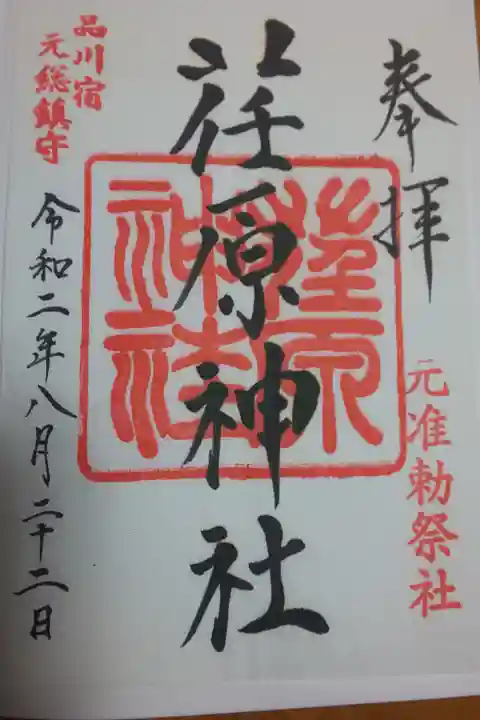 奉拝
元准勅祭社
荏原神社
荏原神社
品川宿
元総鎮守
令和二年八月二十二日